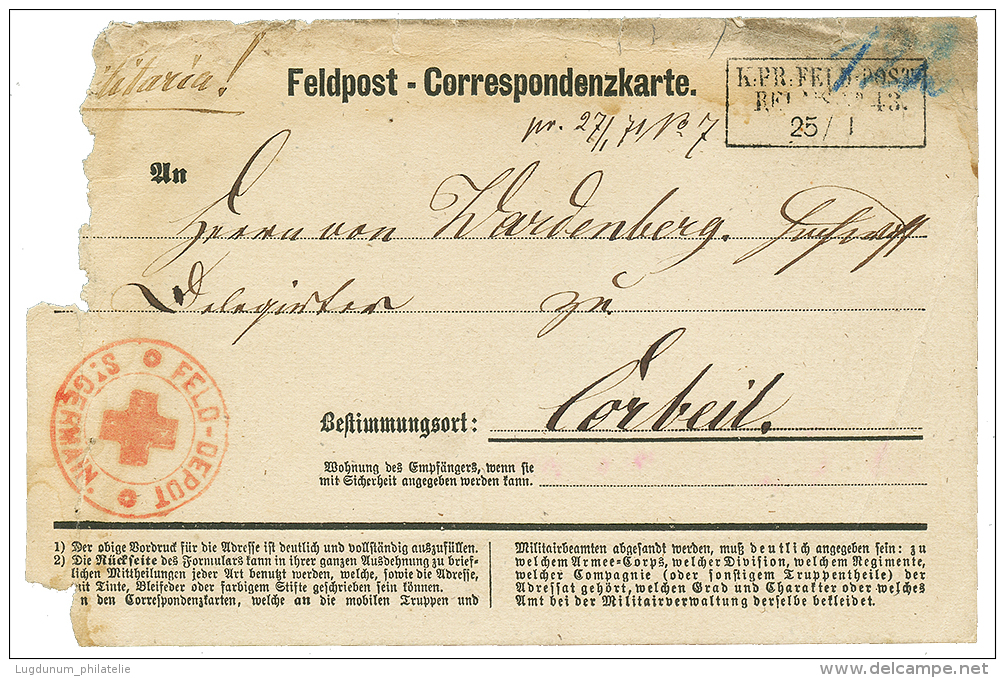 Militaria!
Feldpost - Correspondenzkarte.
K.PR.FELD-POST
RELAIS Nº 43.
25/1
pr. 27/1 71 No 7
An
Herrn von Wardenberg.
Delegirter zu
Corbeil.
Bestimmungsort:
Wohnung des Empfängers, wenn sie
mit Sicherheit angegeben werden kann.
FELD-DEPOT ST GERMAIN.
1) Der obige Vordruck für die Adresse ist deutlich und vollständig auszufüllen.
2) Die Rückseite des Formulars kann in ihrer ganzen Ausdehnung zu brief-
lichen Mittheilungen jeder Art benutzt werden, welche, sowie die Adresse,
mit Tinte, Bleifeder oder farbigem Stifte geschrieben sein können.
n den Correspondenzkarten, welche an die mobilen Truppen und
Militairbeamten abgesandt werden, muß deutlich angegeben sein: zu
welchem Armee-Corps, welcher Division, welchem Regimente,
welcher Compagnie (oder sonstigem Truppentheile) der
Adressat gehört, welchen Grad und Charakter oder welches
Amt bei der Militairverwaltung derselbe bekleidet.
Lugdunum_philatelie
delcampe.net